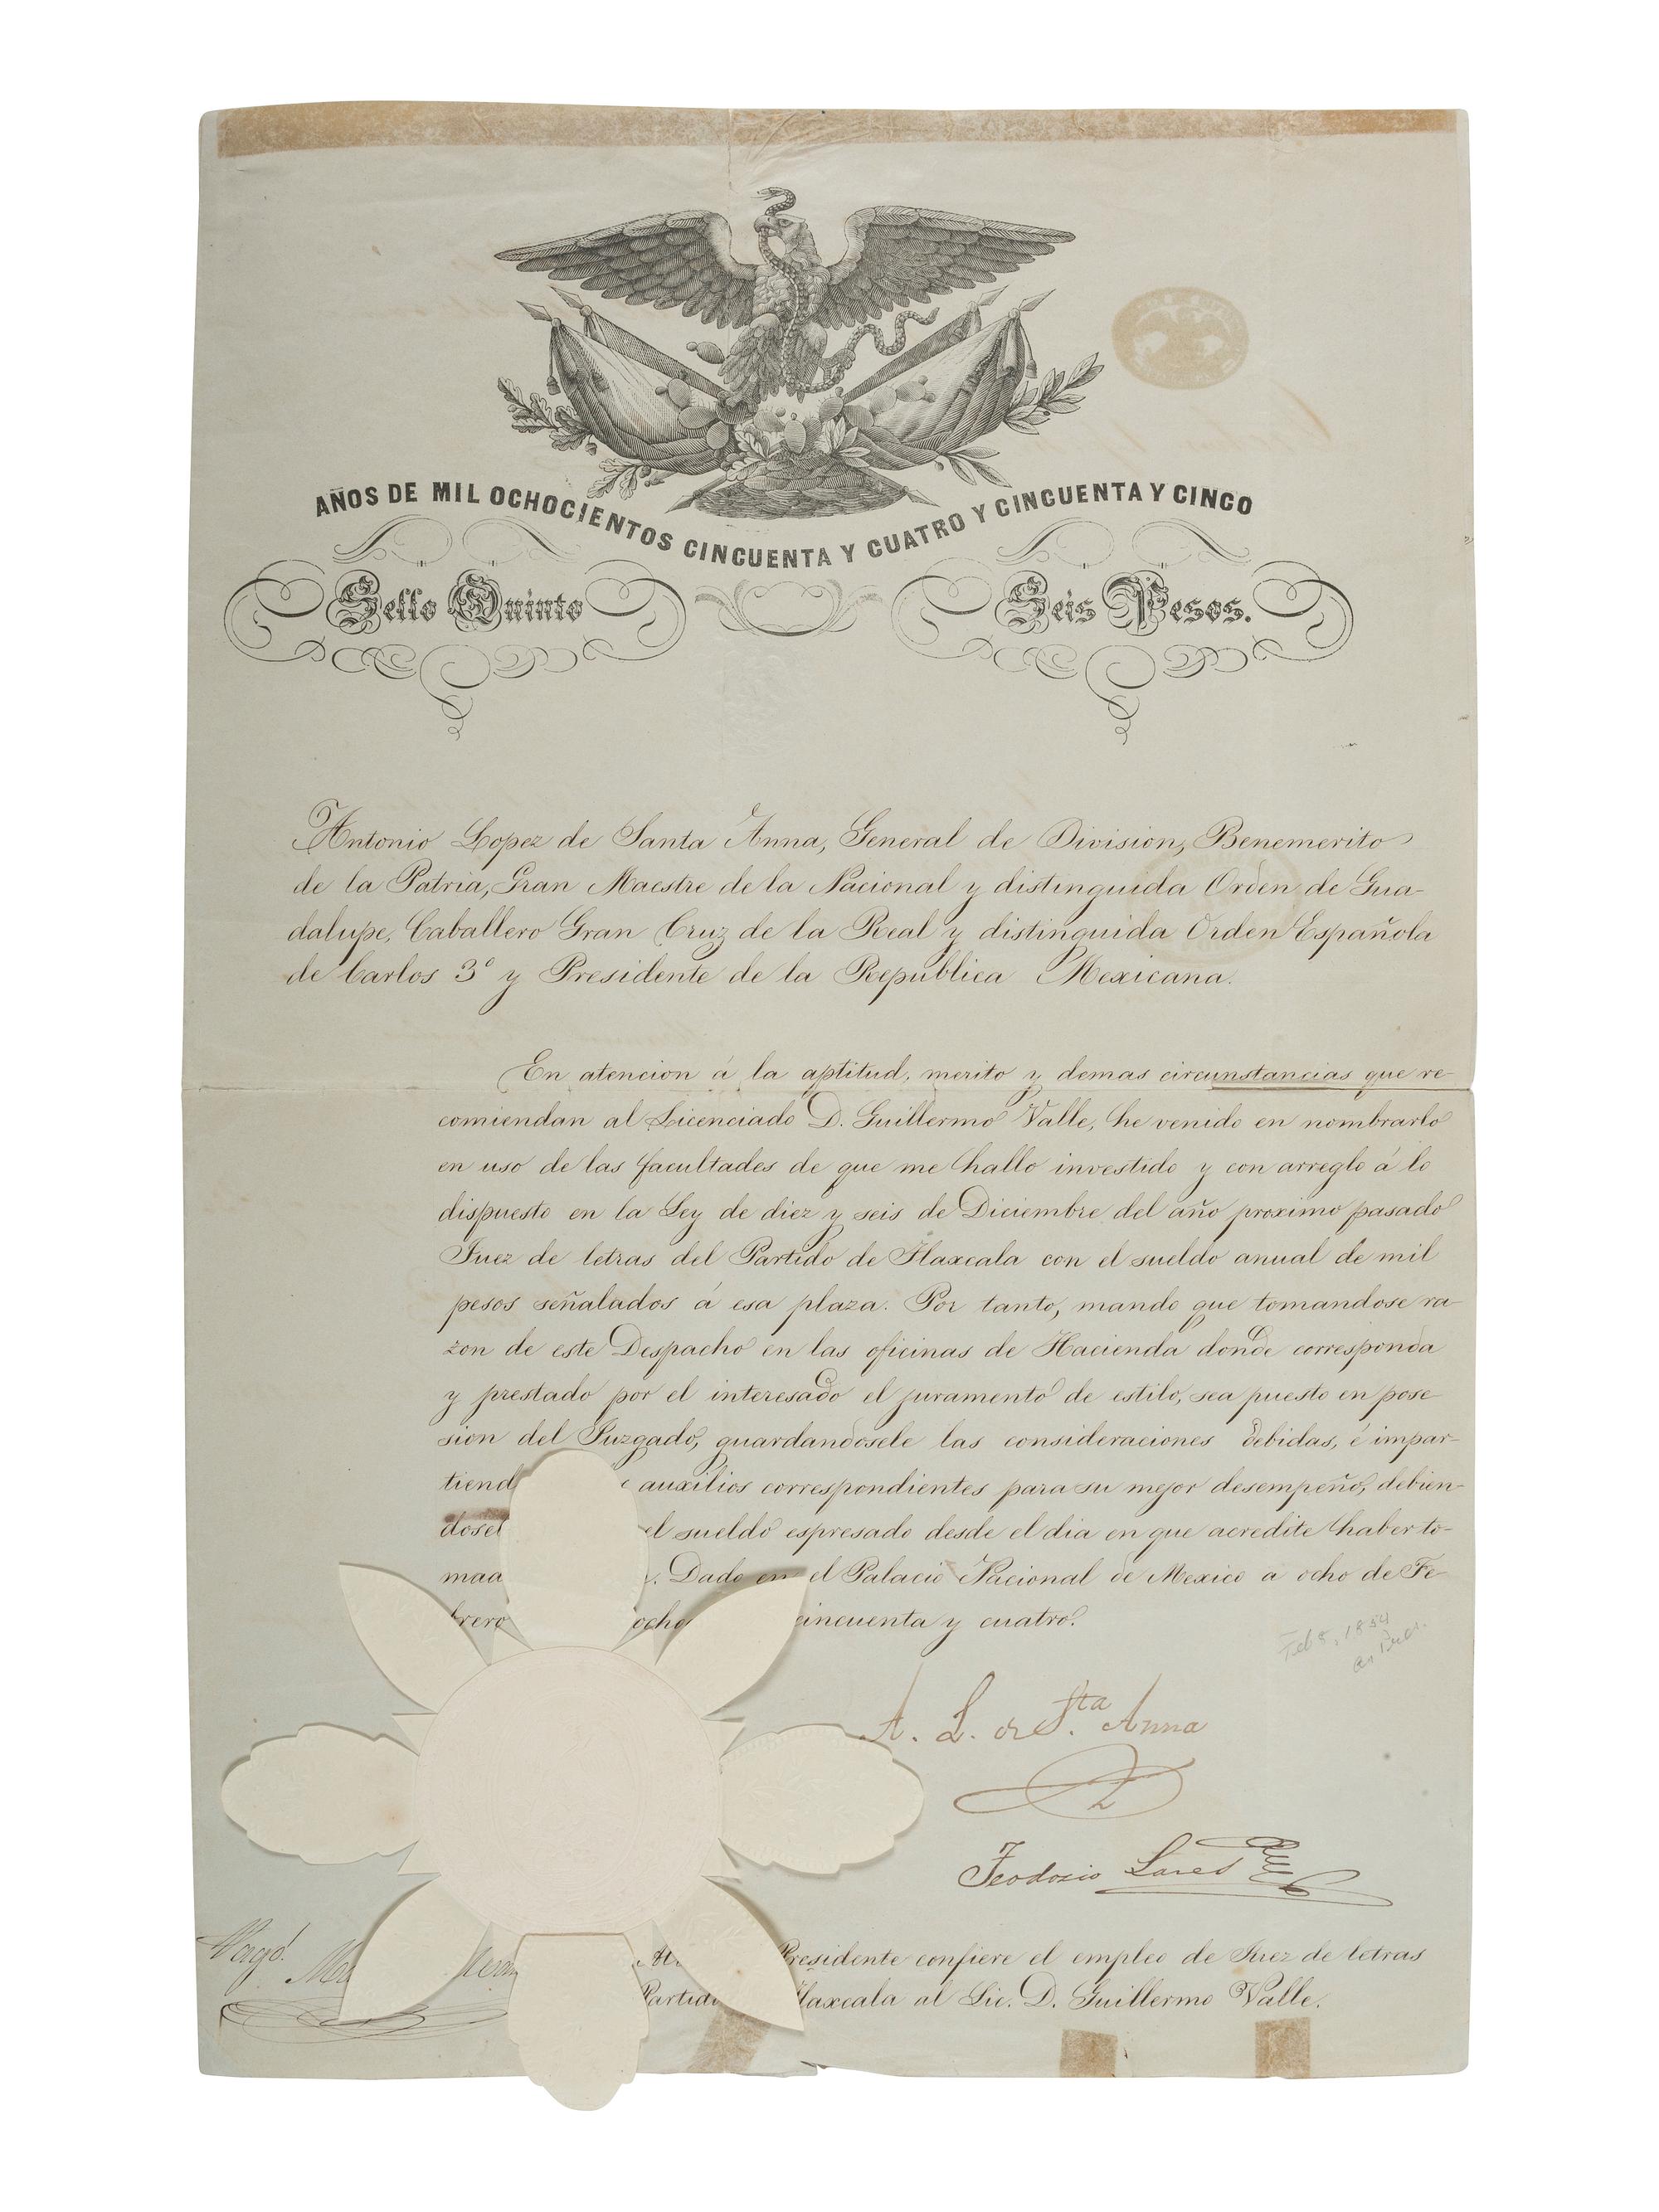 AÑOS DE MIL OCHOCIENTOS CINCUENTA Y CUATRO Y CINCUENTA Y CINCO
Sello Quinto Seis Pesos.
Antonio Lopez de Santa Anna, General de Division, Benemerito
de la Patria, Gran Maestre de la Nacional y distinguida Orden de Gua-
dalupe, Caballero Gran Cruz de la Real y distinguida Orden Española
de Carlos 3º y Presidente de la Republica Mexicana.
En atencion á la aptitud, merito y demas circunstancias que re-
comiendan al Licenciado D. Guillermo Valle, he venido en nombrarlo
en uso de las facultades de que me hallo investido y con arreglo á lo
dispuesto en la Ley de diez y seis de Diciembre del año proximo pasado
Juez de letras del Partido de Tlaxcala con el sueldo anual de mil
pesos señalados á esa plaza. Por tanto, mando que tomandose ra-
zon de este Despacho en las oficinas de Hacienda donde corresponda
y prestado por el interesado el juramento de estilo, sea puesto en pose-
sion del Juzgado, guardandosele las consideraciones debidas, é impar-
tiend auxilios correspondientes para su mejor desempeño, debien-
dosel el sueldo espresado desde el dia en que acredite haber to-
mad Dado en el Palacio Nacional de Mexico a ocho de Fe-
brero ocho cincuenta y cuatro.
Feb 8, 1854
A. L. de Sta. Anna
Teodosio Lares
Presidente confiere el empleo de Juez de letras
Partido Tlaxcala al Lic. D. Guillermo Valle.